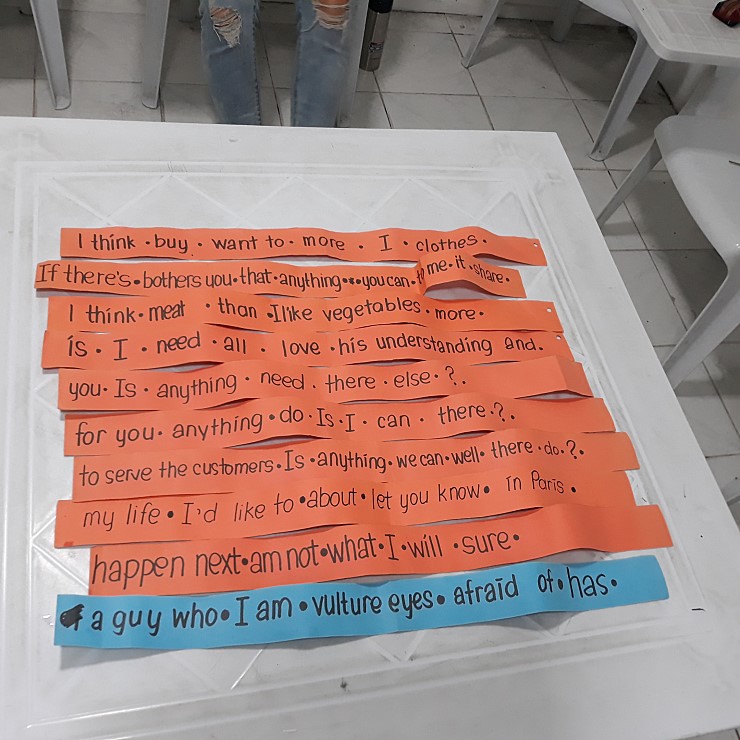 I think • buy • want to • more • I • clothes •
If there's • bothers you • that • anything • you can • to me • it • share •
I think • meat • than • I like vegetables • more •
is • I • need • all • love • his understanding and •
you • Is • anything • need • there • else • ? •
for you • anything • do • Is • I • can • there • ? •
to serve the customers • Is • anything • we can • well • there • do • ? •
my life • I'd like to • about • let you know • in Paris •
happen next • am not • what • I • will • sure •
a guy who • I am • vulture eyes • afraid of • has •